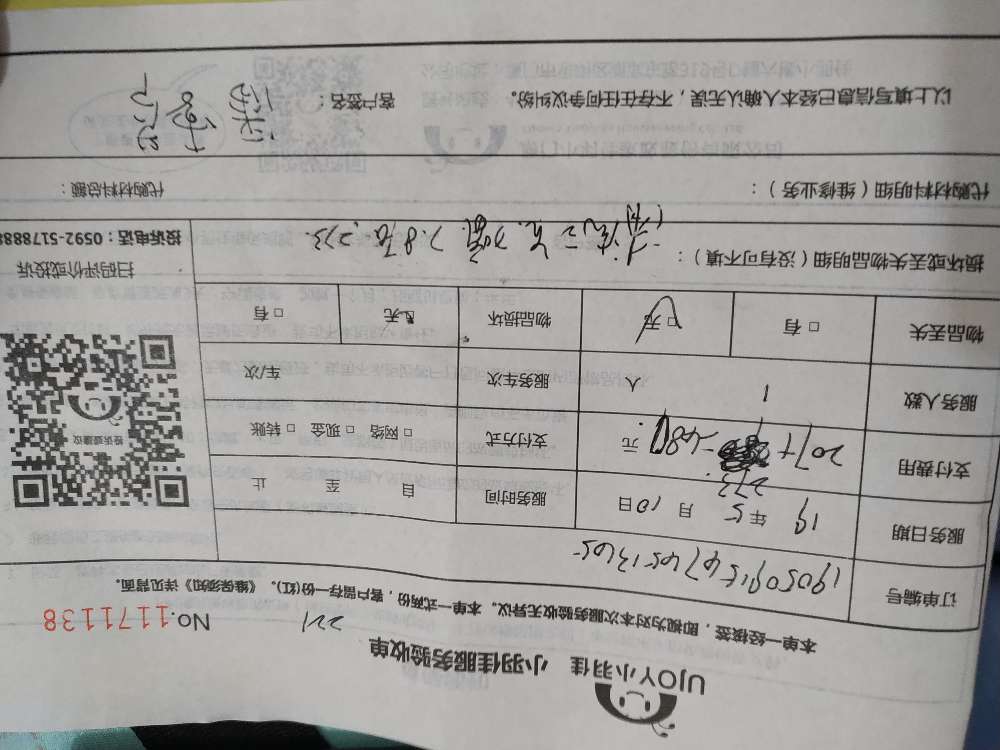 UJOY小羽佳 小羽佳服务验收单
221 No.1171138
本单一经核签，即视为对本次服务验收无异议。本单一式两份，客户留存一份(红)。《维保须知》详见背面。
订单编号
服务日期 19 年 5 月 10 日 服务时间 自 至 止
支付费用 207+ 273 -480 元 支付方式 □ 网络 □ 现金 □ 转账
服务人数 1 人 服务车次 车/次
物品丢失 □ 有 □ 无 物品损坏 □ 无 □ 有
扫码评价或投诉
投诉电话：0592-5178888
损坏或丢失物品明细（没有可不填）：
273.
代购材料明细（维修业务）： 代购材料总额：
以上填写信息已经本人确认无误，不存在任何争议纠纷。 客户签名：